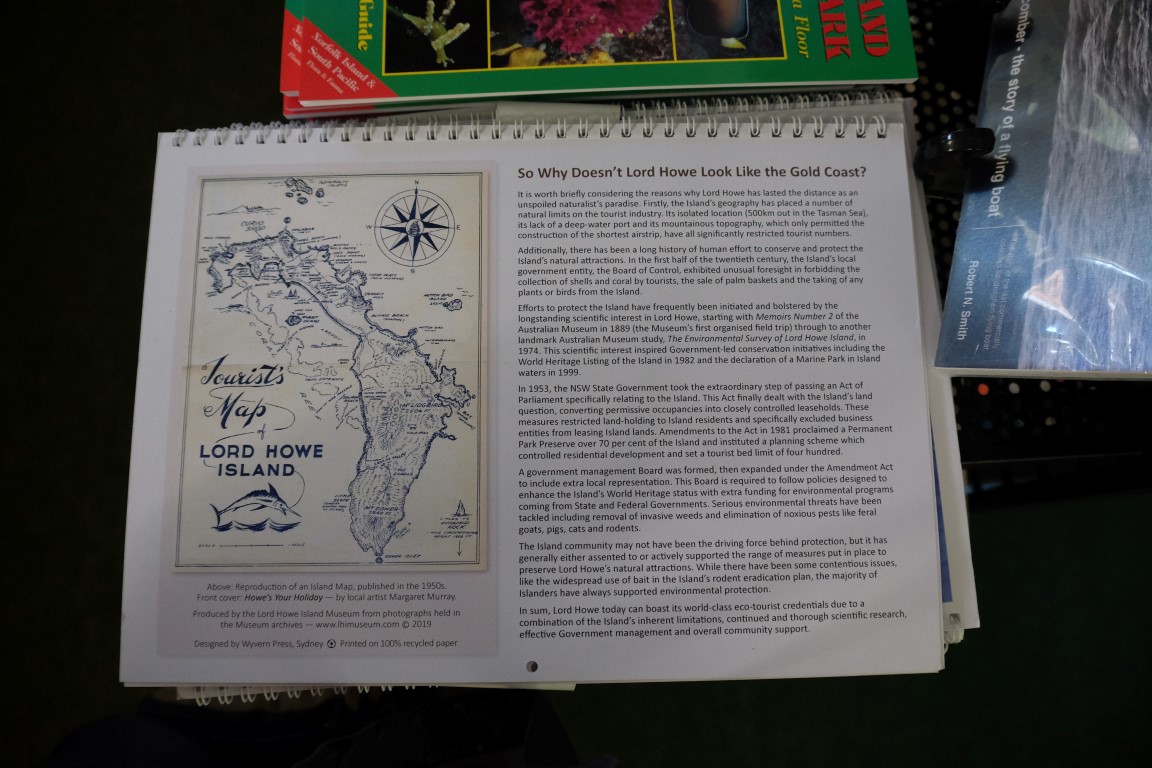 Guide
Norfolk Island &
South Pacific
Flora & Fauna
a Floor
AND
ARK
omber - the story of a flying boat
Robert N. Smith
Tourist's
Map
of
LORD HOWE
ISLAND
N
W
E
S
So Why Doesn't Lord Howe Look Like the Gold Coast?
It is worth briefly considering the reasons why Lord Howe has lasted the distance as an
unspoiled naturalist's paradise. Firstly, the Island's geography has placed a number of
natural limits on the tourist industry. Its isolated location (500km out in the Tasman Sea),
its lack of a deep-water port and its mountainous topography, which only permitted the
construction of the shortest airstrip, have all significantly restricted tourist numbers.
Additionally, there has been a long history of human effort to conserve and protect the
Island's natural attractions. In the first half of the twentieth century, the Island's local
government entity, the Board of Control, exhibited unusual foresight in forbidding the
collection of shells and coral by tourists, the sale of palm baskets and the taking of any
plants or birds from the Island.
Efforts to protect the Island have frequently been initiated and bolstered by the
longstanding scientific interest in Lord Howe, starting with Memoirs Number 2 of the
Australian Museum in 1889 (the Museum's first organised field trip) through to another
landmark Australian Museum study, The Environmental Survey of Lord Howe Island, in
1974. This scientific interest inspired Government-led conservation initiatives including the
World Heritage Listing of the Island in 1982 and the declaration of a Marine Park in Island
waters in 1999.
In 1953, the NSW State Government took the extraordinary step of passing an Act of
Parliament specifically relating to the Island. This Act finally dealt with the Island's land
question, converting permissive occupancies into closely controlled leaseholds. These
measures restricted land-holding to Island residents and specifically excluded business
entities from leasing Island lands. Amendments to the Act in 1981 proclaimed a Permanent
Park Preserve over 70 per cent of the Island and instituted a planning scheme which
controlled residential development and set a tourist bed limit of four hundred.
A government management Board was formed, then expanded under the Amendment Act
to include extra local representation. This Board is required to follow policies designed to
enhance the Island's World Heritage status with extra funding for environmental programs
coming from State and Federal Governments. Serious environmental threats have been
tackled including removal of invasive weeds and elimination of noxious pests like feral
goats, pigs, cats and rodents.
The Island community may not have been the driving force behind protection, but it has
generally either assented to or actively supported the range of measures put in place to
preserve Lord Howe's natural attractions. While there have been some contentious issues,
like the widespread use of bait in the Island's rodent eradication plan, the majority of
Islanders have always supported environmental protection.
In sum, Lord Howe today can boast its world-class eco-tourist credentials due to a
combination of the Island's inherent limitations, continued and thorough scientific research,
effective Government management and overall community support.
Above: Reproduction of an Island Map, published in the 1950s.
Front cover: How's Your Holiday — by local artist Margaret Murray.
Produced by the Lord Howe Island Museum from photographs held in
the Museum archives — www.lhimuseum.com © 2019
Designed by Wyvern Press, Sydney Printed on 100% recycled paper